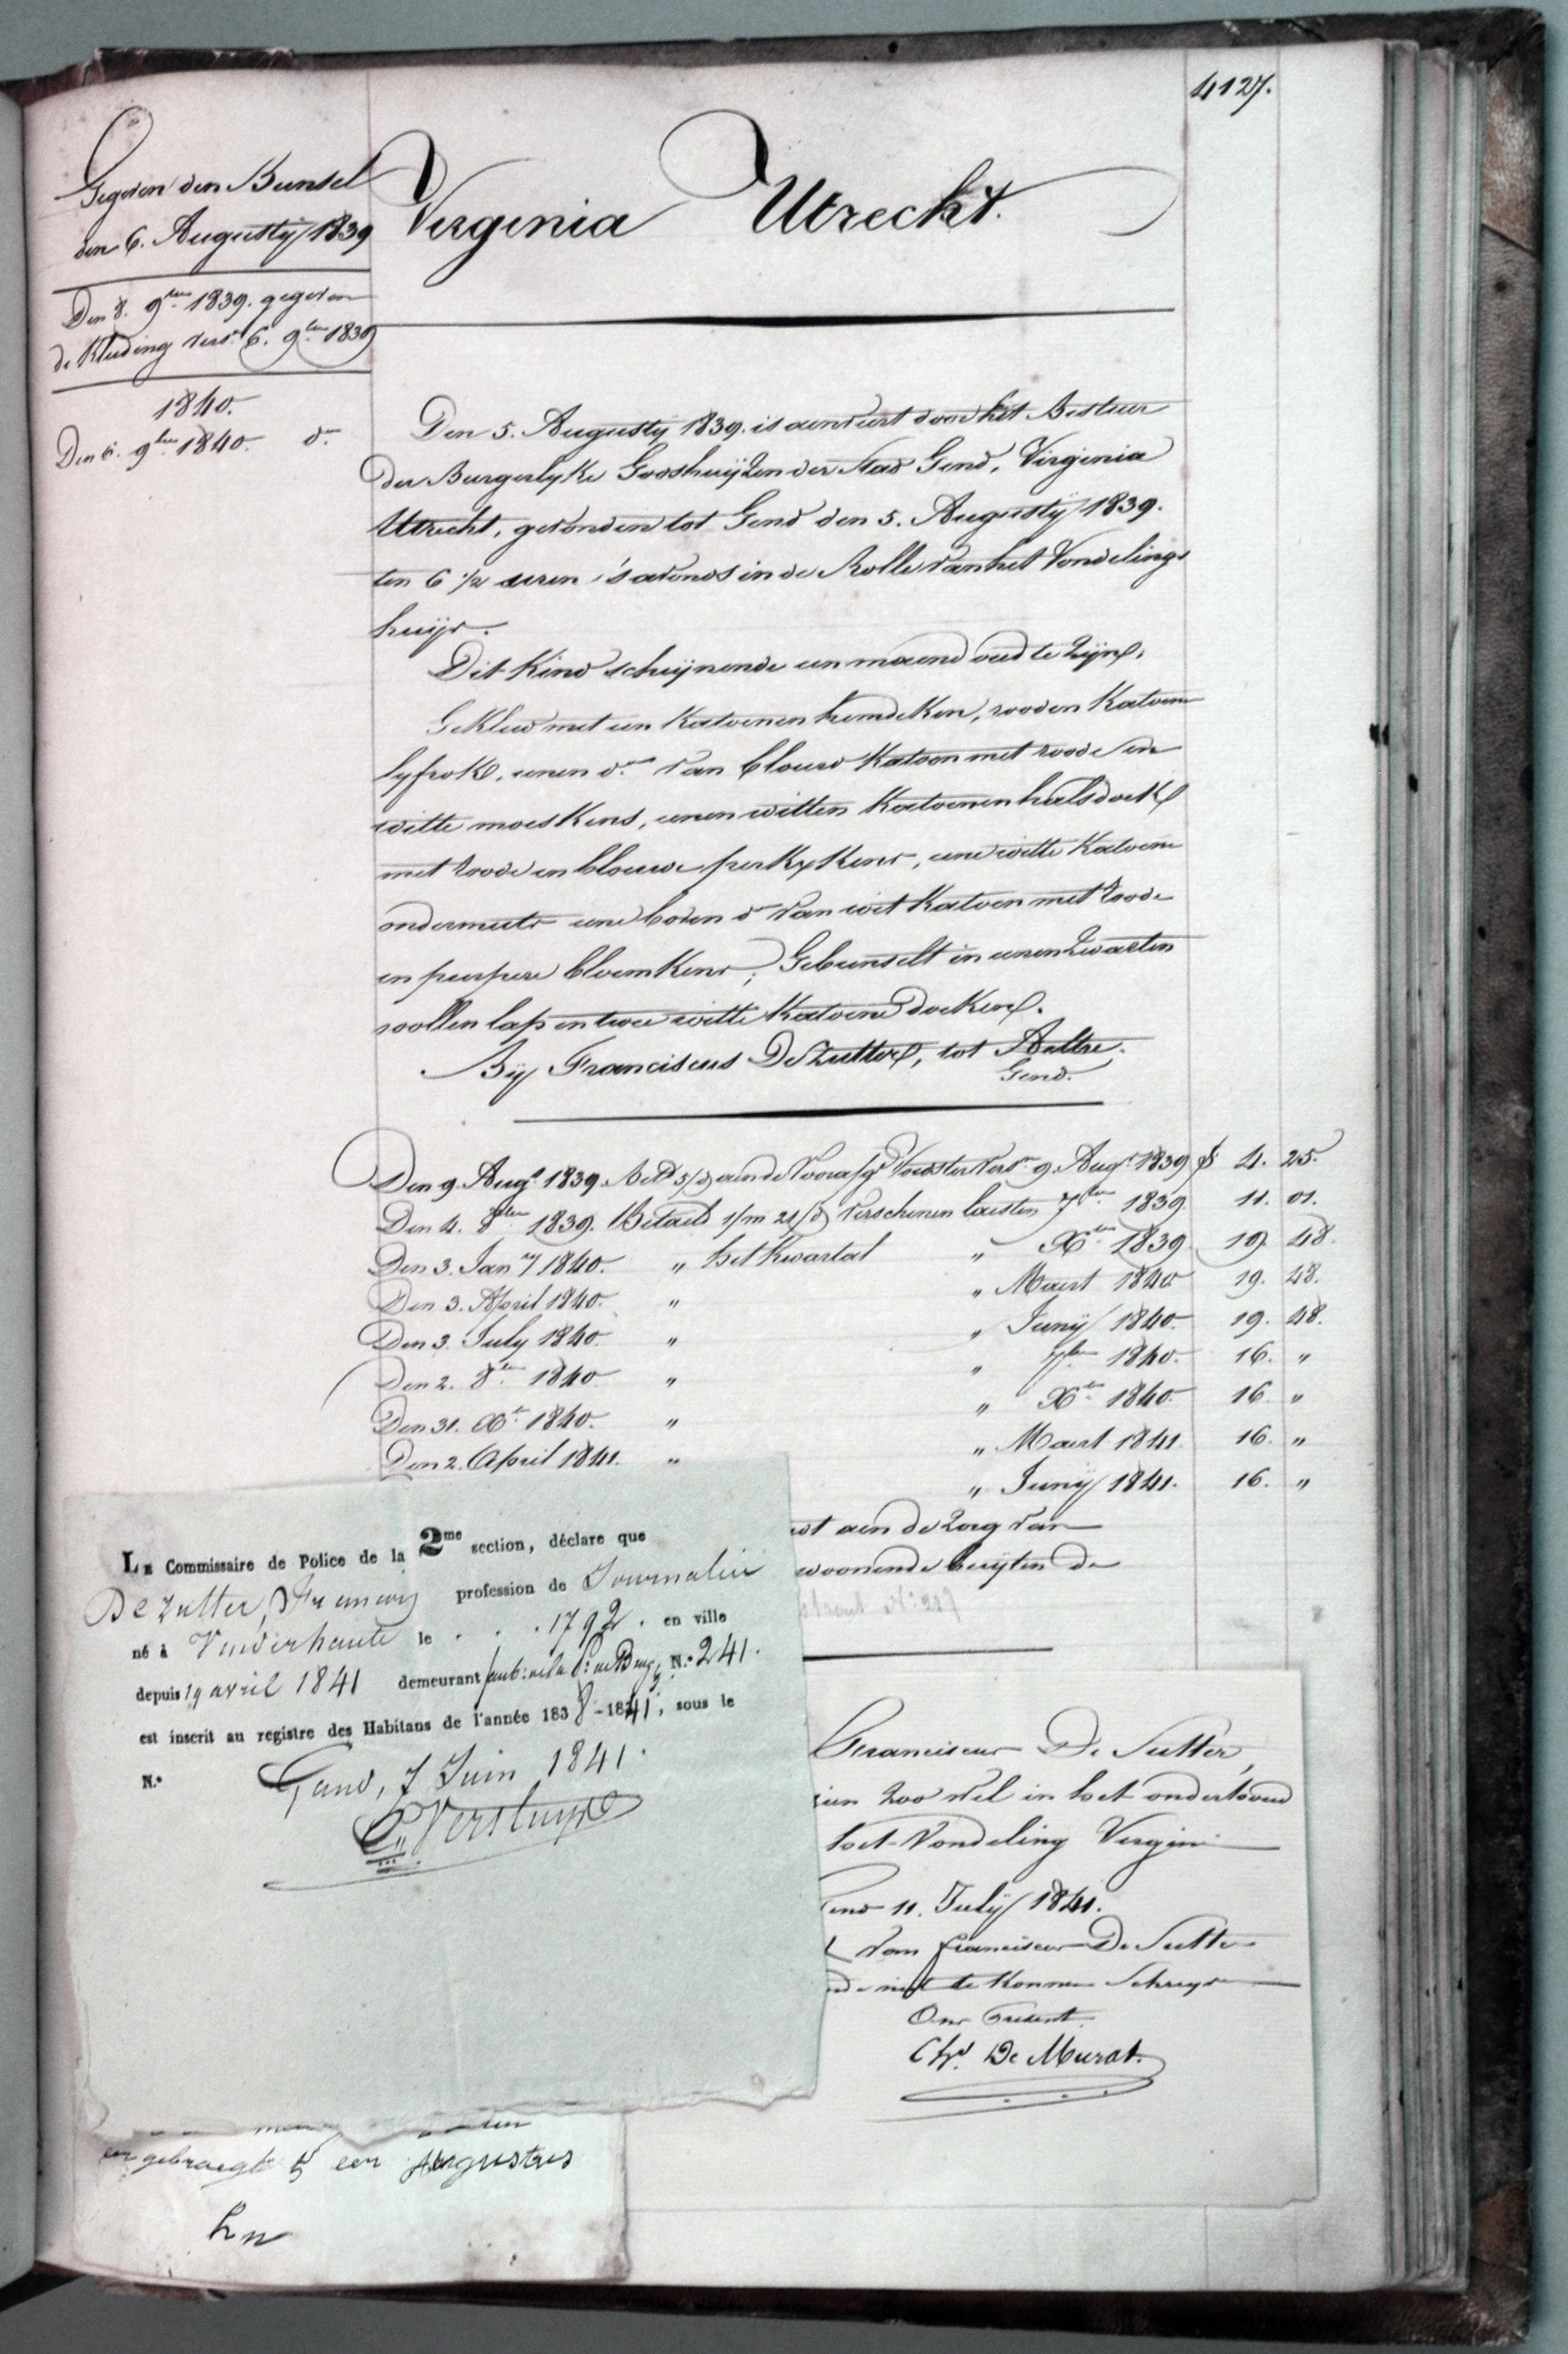 4127.
Gegeven den Bunsel
den 6. Augusty 1839
Den 8. 9ber 1839. gegeven
de Kleeding vers. 6. 9ber 1839
1840.
Den 6. 9ber 1840. do
Virginia Utrecht.
Den 5. Augusty 1839. is aenveirt door het Bestuer
der Burgerlyke Godshuijzen der Stad Gend, Virginia
Utrecht, gevonden tot Gend den 5. Augustÿ 1839.
ten 6 1/2 uren 's avonds in de Rolle van het Vondelings
huijs.
Dit Kind schijnende een maend oud te zijn.
Gekleed met een Katoenen hemdeken, rooden Katoen
lyfrok, eenen do van blouw Katoen met roode en
witte moeskens, eenen witten Katoenen halsdoek
met roode en blouwe perkxkens, eene witte Katoene
ondermuts eene boven do van wit Katoen met roode
en purpere bloemkens; Gebunselt in eenen zwarten
wollen lap en twee witte Katoene doeken.
Bij Franciscus De Zutter, tot Aeltre.
Gend.
Den 9. Augt 1839. Betd 5/d aen de Voorsten vers. 9. Augt 1839 4. 25.
Den 4. 8ber 1839. Betaeld 1/m 21/d verschenen laesten 7ber 1839. 11. 01.
Den 3. Jany 1840. " het Kwartal " Xber 1839 19. 48.
Den 3. April 1840. " " Maert 1840 19. 48.
Den 3. July 1840. " " Junÿ 1840. 19. 48.
Den 2. 8ber 1840 " " 7ber 1840. 16. "
Den 31. Xber 1840. " " Xber 1840. 16. "
Den 2. April 1841. " " Maert 1841. 16. "
" Junÿ 1841. 16. "
aen de Zorg van
woonende buijten de
Le Commissaire de Police de la 2me section, déclare que
De Zutter, François profession de Journalier
né à Vinderhaute le . . . 1792. en ville
depuis 19 avril 1841 demeurant N.º 241.
est inscrit au registre des Habitans de l'année 1838-1841, sous le
N.º
Gand, 7 Juin 1841.
Versluys
Franciscus De Sutter,
zoo wel in het onderhoud
het Vondeling Virgin
Gend 11. Julÿ 1841.
van franciscus De Sutter
niet te konnen Schryv
Ons Present
Chs. De Murat.
gebraegt 5 een Augustus